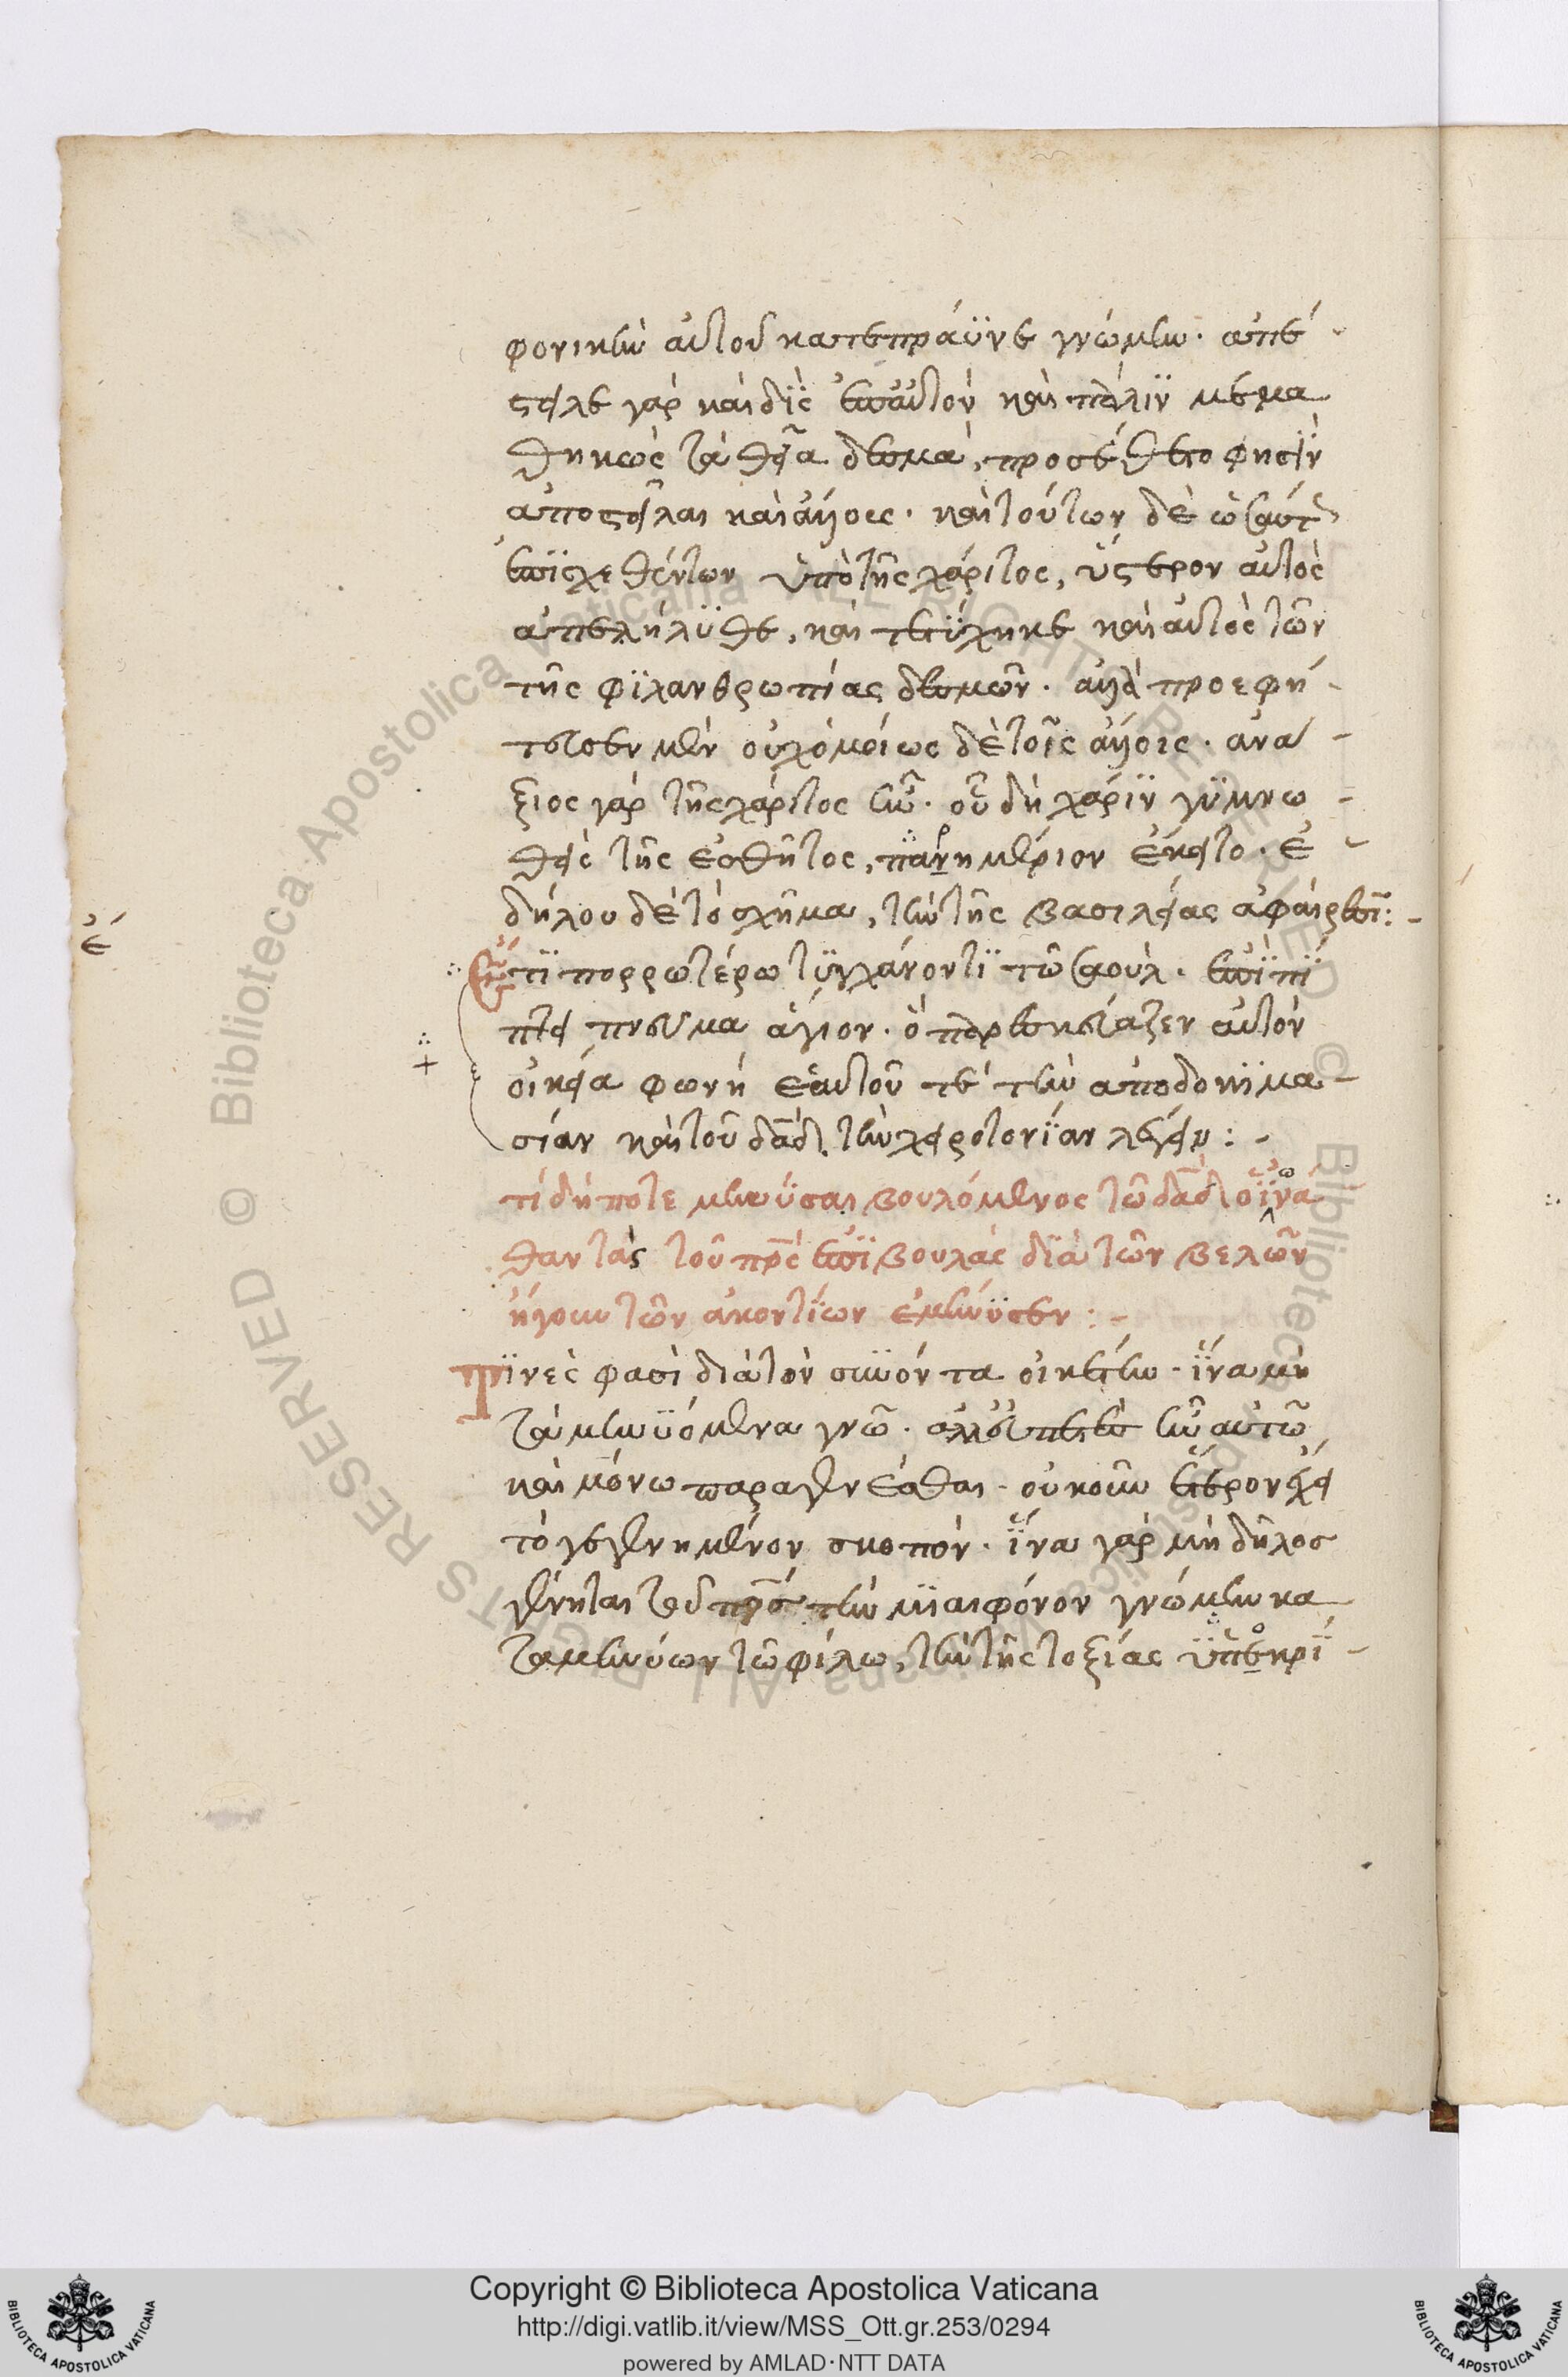 φονικὴν αὐτοῦ κατεπράϋνε γνώμην. ἀπέ-
στειλε γὰρ καὶ δὶς ἐπ' αὐτὸν καὶ πάλιν μεμα
θηκὼς τὰ θεῖα θεσμά, προσέθετο φησὶν
ἀποστεῖλαι καὶ ἄλλους. καὶ τούτων δὲ ὡσαύτως
ἐπισχεθέντων ὑπὸ τῆς χάριτος, ὕστερον αὐτὸς
ἀπελήλυθε, καὶ τετύχηκε καὶ αὐτὸς τῶν
τῆς φιλανθρωπίας δεσμῶν. ἀλλὰ προεφή-
τευσεν μὲν οὐχ ὁμοίως δὲ τοῖς ἄλλοις. ἀνά-
ξιος γὰρ τῆς χάριτος ἦν. οὗ δὴ χάριν γυμνω-
θεὶς τῆς ἐσθῆτος, πανημέριον ἔκειτο. ἐ-
δήλου δὲ τὸ σχῆμα, τὴν τῆς βασιλείας ἀφαίρεσιν:-
έ
Ἔτι πορρωτέρω τυγχάνοντι τῷ σαούλ. ἐπιπί
πτει πνεῦμα ἅγιον. ὅπερ ἐβάσταζεν αὐτὸν
οἰκεία φωνῇ ἑαυτοῦ τέ τὴν ἀποδοκιμα-
σίαν καὶ τοῦ δαδ τὴν χειροτονίαν λέγειν:-
τί δήποτε μηνύσαι βουλόμενος τῷ δαδ ὁ ἰωνά
θαν τὰς τοῦ πρς ἐπιβουλὰς διὰ τῶν βελῶν
ἤγουν τῶν ἀκοντίων ἐμήνυσεν:-
Τινές φασι διὰ τὸν συνόντα οἰκέτην. ἵνα μὴ
τὰ μηνυόμενα γνῶ. ἀλλ' ἐπετεὶν ἦν αὐτῷ
καὶ μόνω παραγενέσθαι. οὐκοῦν ἕτερον ἔχει
τὸ γεγενημένον σκοπόν. ἵνα γὰρ μὴ δῆλος
γένηται τοῦ πρς τὴν μιαιφόνον γνώμην κα
ταμηνύων τῷ φίλω, τὴν τῆς τοξίας ὑπεκρί-
Copyright © Biblioteca Apostolica Vaticana
http://digi.vatlib.it/view/MSS_Ott.gr.253/0294
powered by AMLAD·NTT DATA